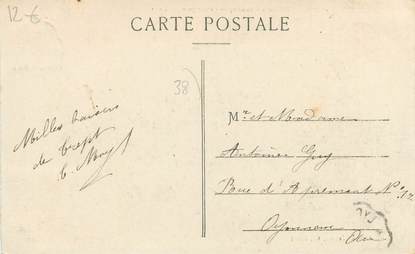 12 €
CARTE POSTALE
38
Milles baisers
de Crept
Mr et Madame
Antoine Guy
Rue d'Apremont No 12
Oyonnax
Ain